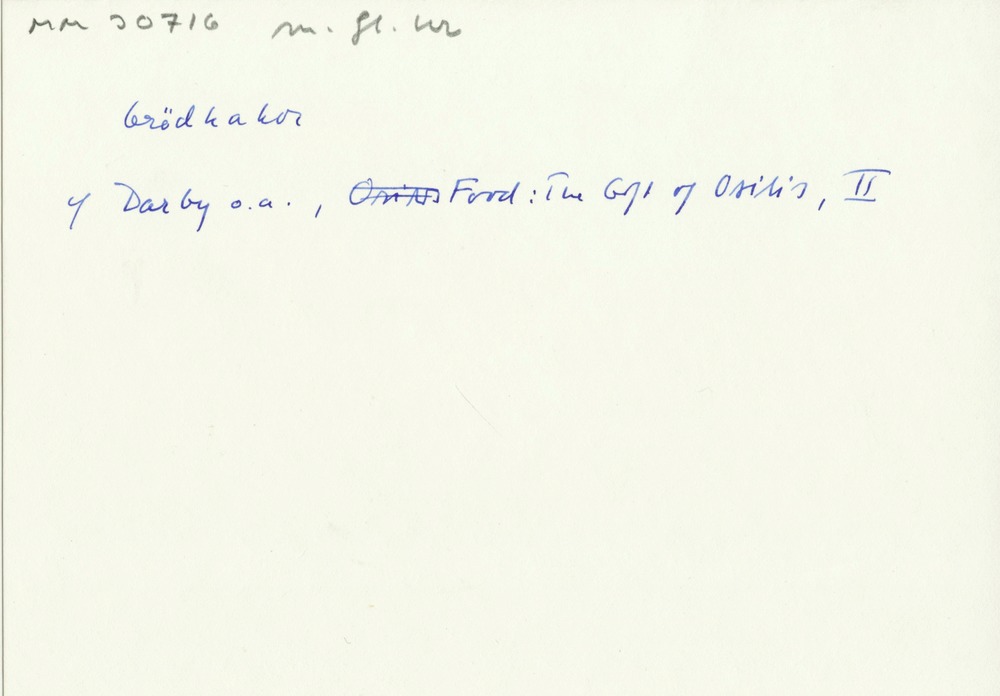 MM 30716 m. gl. nr
brödkakor
cf Darby o.a., Osiris Food: The Gift of Osiris, II